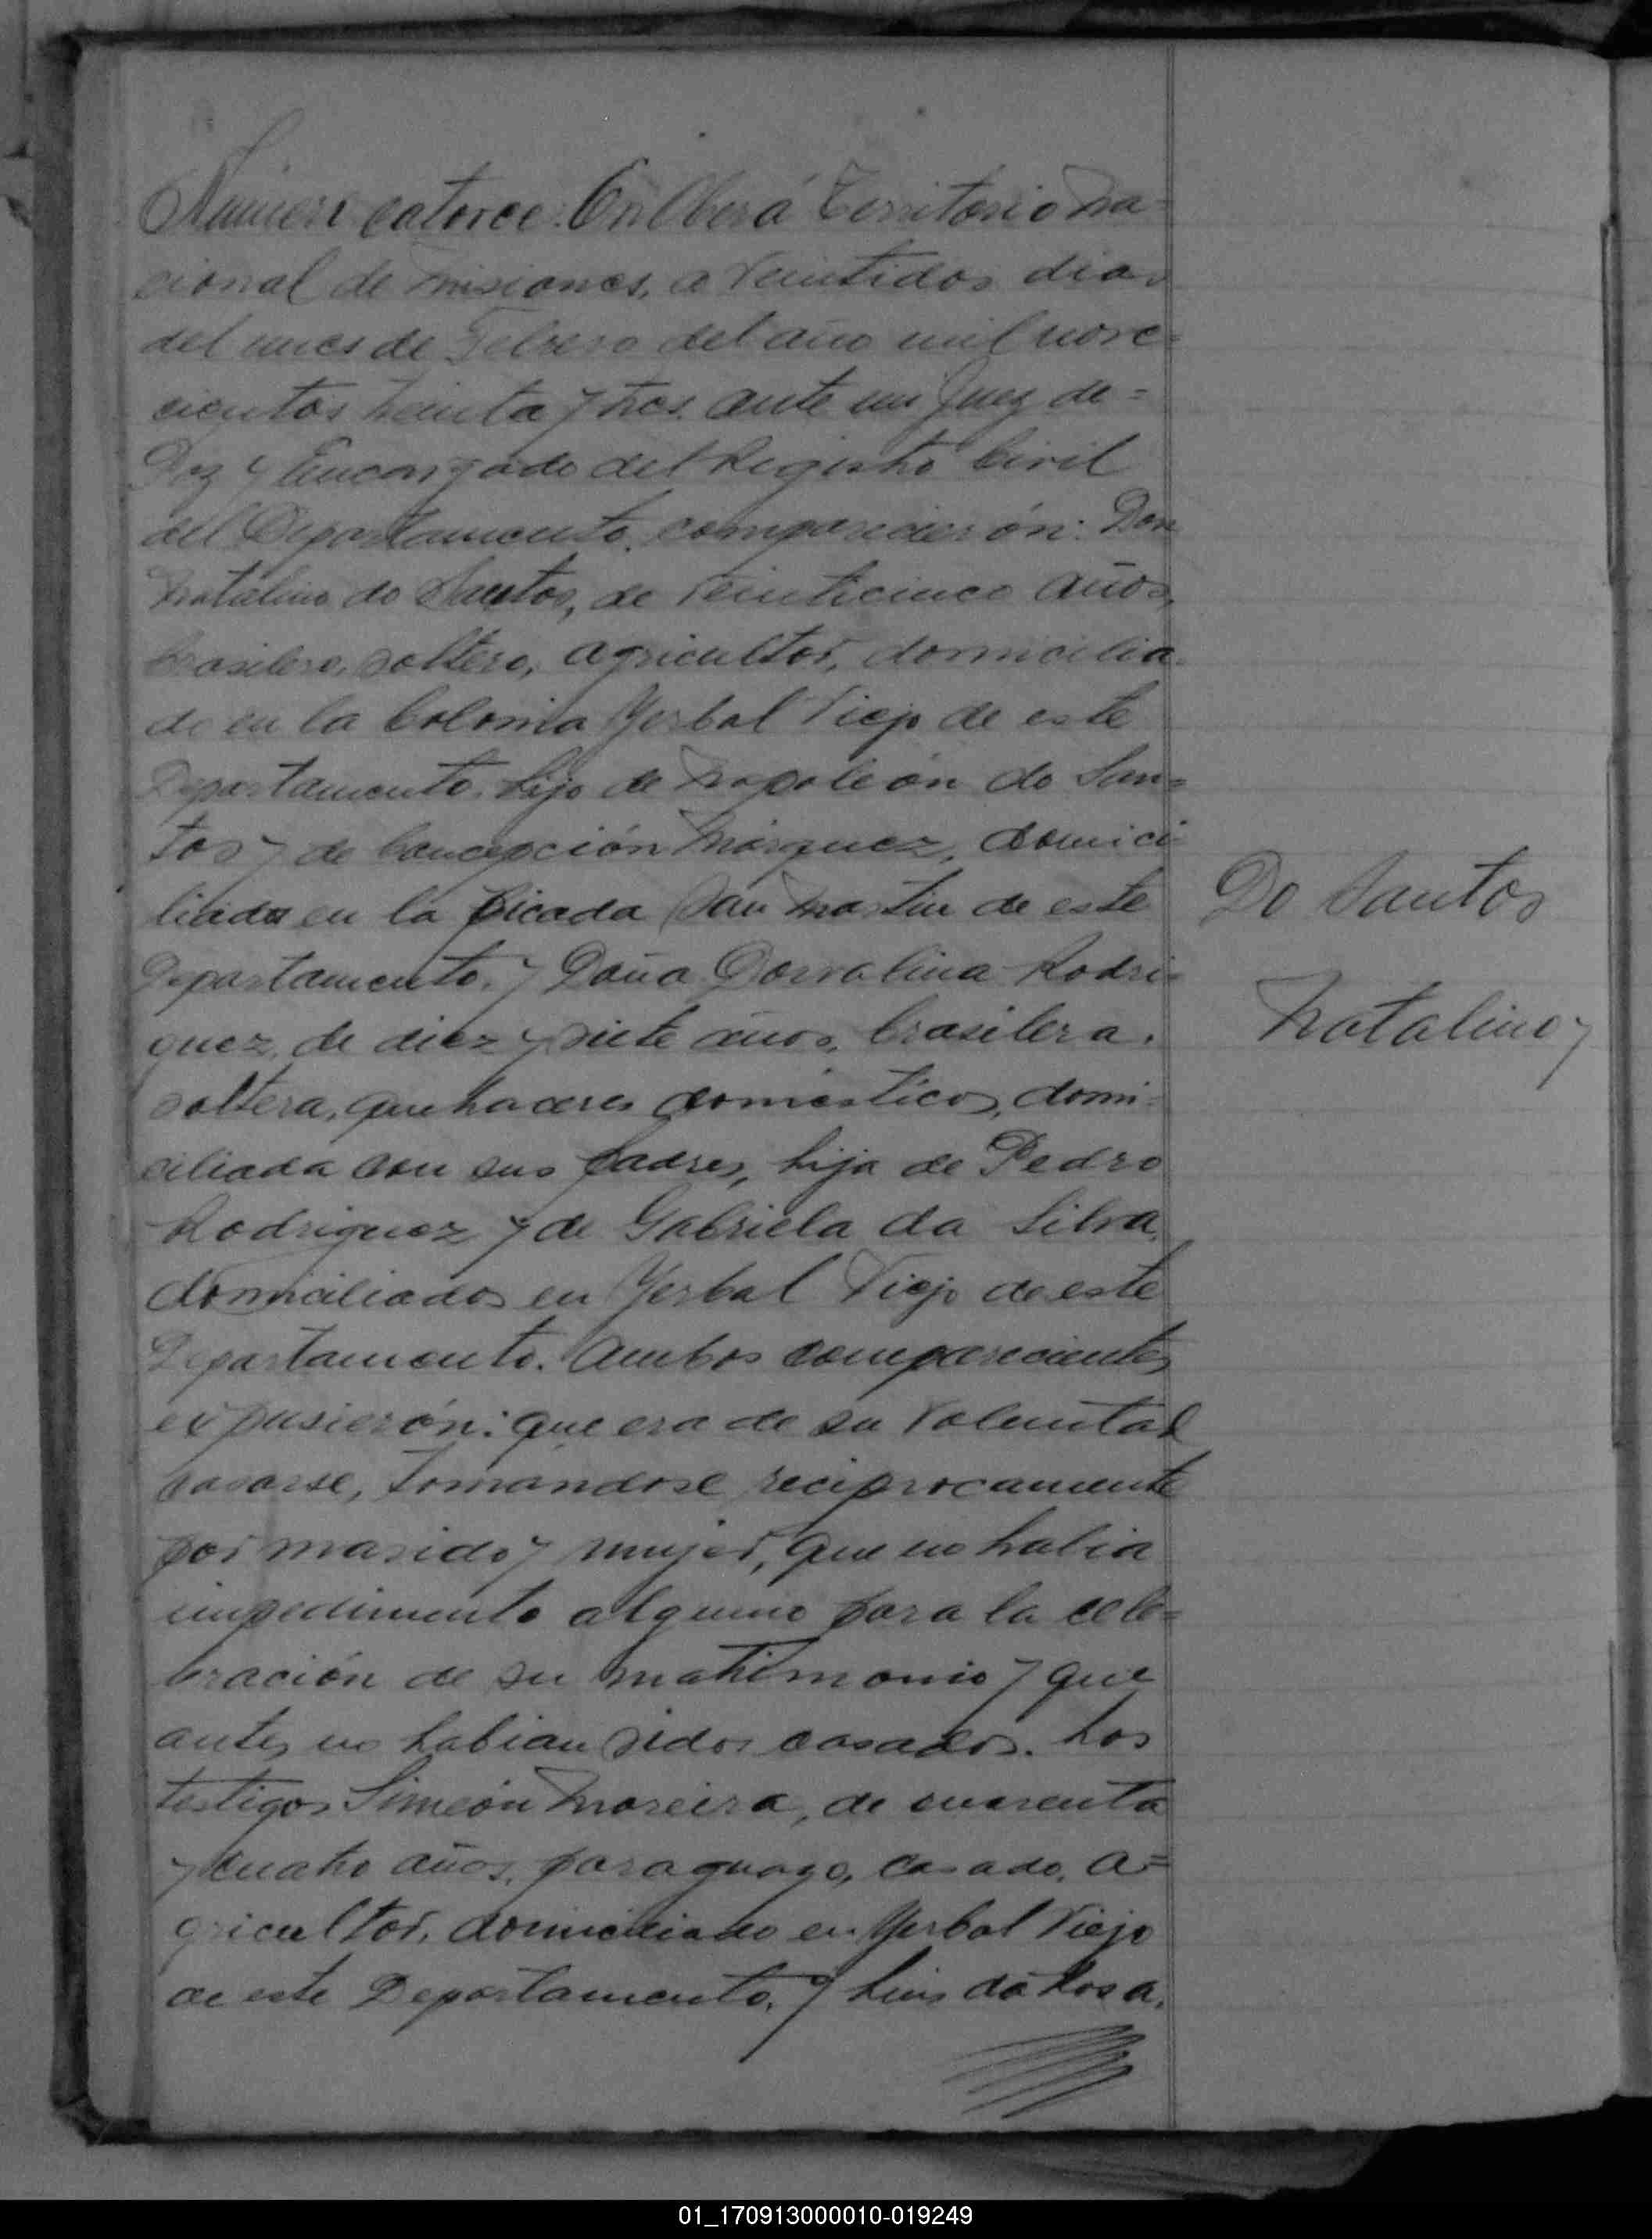 Número catorce: En Oberá Territorio Na=
cional de Misiones, a veintidos dias
del mes de Febrero del año mil nove=
cientos treinta y tres. ante mi Juez de=
Paz y Encargado del Registro Civil
del Departamento, comparecierón: Don
Natalino do Santos, de veinticinco años,
brasilero, soltero, agricultor, domicilia=
do en la Colonia Yerbal Viejo de este
Departamento, hijo de Napoleón do San=
tos y de Concepción Márquez, domici=
liada en la Picada San Martin de este
Departamento. y Doña Dorvalina Rodri=
guez, de diez y siete años, brasilera,
soltera, quehaceres domésticos, domi=
ciliada con sus padres, hija de Pedro
Rodriguez y de Gabriela da Silva,
domiciliados en Yerbal Viejo de este
Departamento. Ambos comparecientes
expusierón: que era de su voluntad
casarse, tomándose reciprocamente
por marido y mujer, que no habia
impedimento alguno para la cele=
bración de su matrimonio y que
antes no habian sidos casados. Los
testigos Simeón Moreira, de cuarenta
y cuatro años, paraguayo, casado, a=
gricultor, domiciliado en Yerbal Viejo
de este Departamento, y Luis da Rosa,
Do Santos
Natalino y
01_170913000010-019249